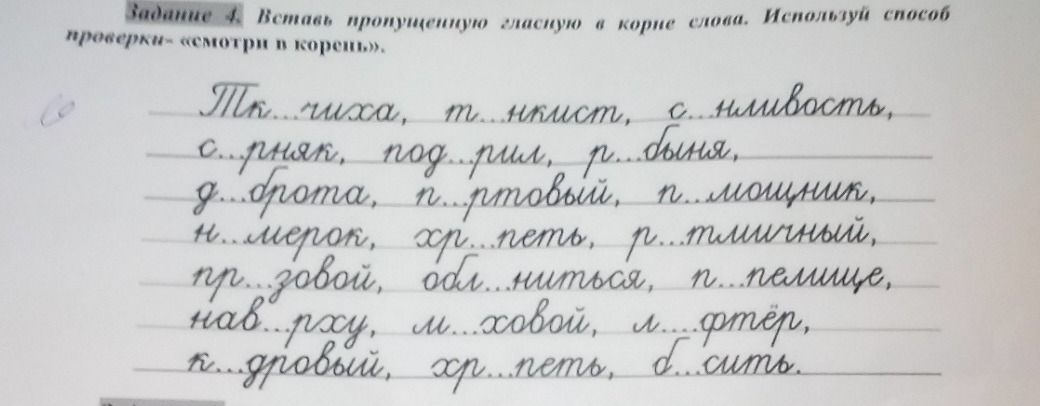 Задание 4. Вставь пропущенную гласную в корне слова. Используй способ
проверки- «смотри в корень».
Тк...чиха, т...нкист, с...нливость,
с...рняк, под...рил, р...быня,
д...брота, п...ртовый, п...мощник,
н...мерок, хр...петь, р...тмичный,
пр...зовой, обл...ниться, п...пелище,
нав...рху, м...ховой, л....фтёр,
к...дровый, хр...петь, б...сить.